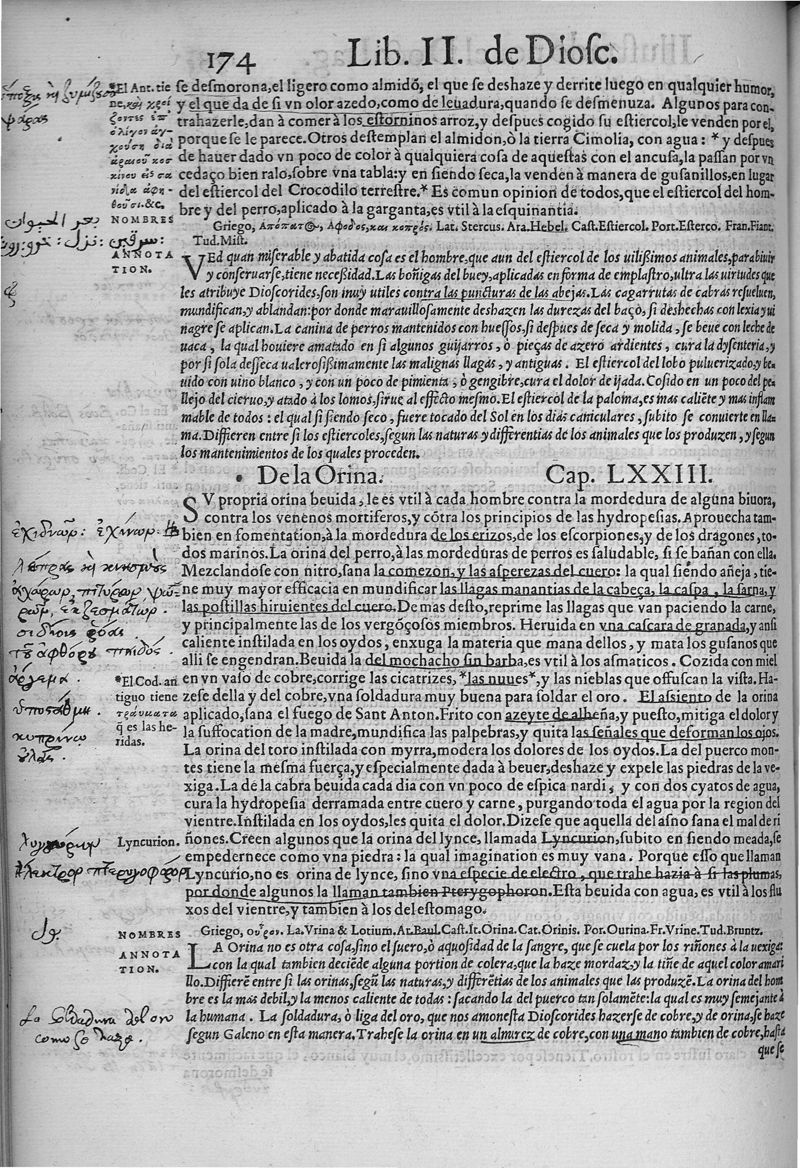 174 Lib. II. de Diosc.
se desmorona, el ligero como almidõ, el que se deshaze y derrite luego en qualquier humor,
y el que da de si vn olor azedo, como de leuadura, quando se desmenuza. Algunos para con-
trahazerle, dan à comer à los estorninos arroz, y despues cogido su estiercol, le venden por el,
porque se le parece. Otros destemplan el almidon, ò la tierra Cimolia, con agua: * y despues
de hauer dado vn poco de color à qualquiera cosa de aquestas con el ancusa, la passan por vn
cedaço bien ralo, sobre vna tabla: y en siendo seca, la venden à manera de gusanillos, en lugar
del estiercol del Crocodilo terrestre. * Es comun opinion de todos, que el estiercol del hom-
bre y del perro, aplicado à la garganta, es vtil à la esquinantia.
*El Ant. tie
ne,
NOMBRES
Griego, Lat. Stercus. Ara. Hebel. Cast. Estiercol. Port. Esterco. Fran. Fiant.
Tud. Mist.
ANNOTA
TION.
VEd quan miserable y abatida cosa es el hombre, que aun del estiercol de los uilissimos animales, para biuir
y conseruarse, tiene necessidad. Las boñigas del buey, aplicadas en forma de emplastro, ultra las uirtudes que
les atribuye Dioscorides, son muy utiles contra las puncturas de las abejas. Las cagarrutas de cabras resueluen,
mundifican, y ablandan: por donde marauillosamente deshazen las durezas del baço, si deshechas con lexia y ui
nagre se aplican. La canina de perros mantenidos con huessos, si despues de seca y molida, se beue con leche de
uaca, la qual houiere amatado en si algunos guijarros, ò pieças de azero ardientes, cura la dysenteria, y
por si sola desseca ualerosissimamente las malignas llagas, y antiguas. El estiercol del lobo puluerizado, y be
uido con uino blanco, y con un poco de pimienta, ò gengibre, cura el dolor de ijada. Cosido en un poco del pe
llejo del cieruo, y atado à los lomos, sirue al effecto mesmo. El estiercol de la paloma, es mas caliẽte y mas inflam
mable de todos: el qual si siendo seco, fuere tocado del Sol en los dias caniculares, subito se conuierte en lla
ma. Differen entre si los estiercoles, segun las naturas y differentias de los animales que los produzen, y segun
los mantenimientos de los quales proceden.
De la Orina. Cap. LXXIII.
SV propria orina beuida, le es vtil à cada hombre contra la mordedura de alguna biuora,
contra los venenos mortiferos, y cõtra los principios de las hydropesias. Aprouecha tam-
bien en fomentation, à la mordedura de los erizos, de los escorpiones, y de los dragones, to-
dos marinos. La orina del perro, à las mordeduras de perros es saludable, si se bañan con ella.
Mezclandose con nitro, sana la comezon, y las asperezas del cuero: la qual siẽndo añeja, tie-
ne muy mayor efficacia en mundificar las llagas manantias de la cabeça, la caspa, la sarna, y
las postillas hiruientes del cuero. De mas desto, reprime las llagas que van paciendo la carne,
y principalmente las de vergõçosos miembros. Heruida en vna cascara de granada, y ansi
caliente instilada en los oydos, enxuga la materia que mana dellos, y mata los gusanos que
alli se engendran. Beuida la del mochacho sin barba, es vtil à los asmaticos. Cozida con miel
en vn vaso de cobre, corrige las cicatrizes, *las nuues*, y las nieblas que offuscan la vista. Ha-
zese della y del cobre, vna soldadura muy buena para soldar el oro. El assiento de la orina
aplicado, sana el fuego de Sant Anton. Frito con azeyte de alheña, y puesto, mitiga el dolor y
la suffocation de la madre, mundifica las palpebras, y quita las señales que deforman los ojos.
La orina del toro instilada con myrra, modera los dolores de los oydos. La del puerco mon-
tes tiene la mesma fuerça, y especialmente dada à beuer, deshaze y expele las piedras de la ve-
xiga. La de la cabra beuida cada dia con vn poco de espica nardi, y con dos cyatos de agua,
cura la hydropesia derramada entre cuero y carne, purgando toda el agua por la region del
vientre. Instilada en los oydos, les quita el dolor. Dizese que aquella del asno sana el mal de ri
ñones. Creen algunos que la orina del lynce, llamada Lyncurion, subito en siendo meada, se
empedernece como vna piedra: la qual imagination es muy vana. Porque esso que llaman
Lyncurio, no es orina de lynce, sino vna especie de electro, que trahe hazia à si las plumas,
por donde algunos la llaman tambien Pterygophoron. Esta beuida con agua, es vtil à los flu
xos del vientre, y tambien à los del estomago.
*El Cod. an
tiguo tiene
τραύματα
q̃ es las he-
ridas.
Lyncurion.
NOMBRES
Griego, οὖρον. La. Vrina & Lotium. Ar. Baul. Cast. It. Orina. Cat. Orinis. Por. Ourina. Fr. Vrine. Tud. Bruntz.
ANNOTA
TION.
LA Orina no es otra cosa, sino el suero, ò aquosidad de la sangre, que se cuela por los riñones à la uexiga:
con la qual tambien deciẽde alguna portion de colera, que la haze mordaz, y la tiñe de aquel color amari
llo. Differẽ entre si las orinas, segũ las naturas, y differẽtias de los animales que las produzẽ. La orina del hom
bre es la mas debil, y la menos caliente de todas: sacando la del puerco tan solamẽte: la qual es muy semejante à
la humana. La soldadura, ò liga del oro, que nos amonesta Dioscorides hazerse de cobre, y de orina, se haze
segun Galeno en esta manera. Trahese la orina en un almirez de cobre, con una mano tambien de cobre, hasta
que se
La Soldadura del oro
como se haze.